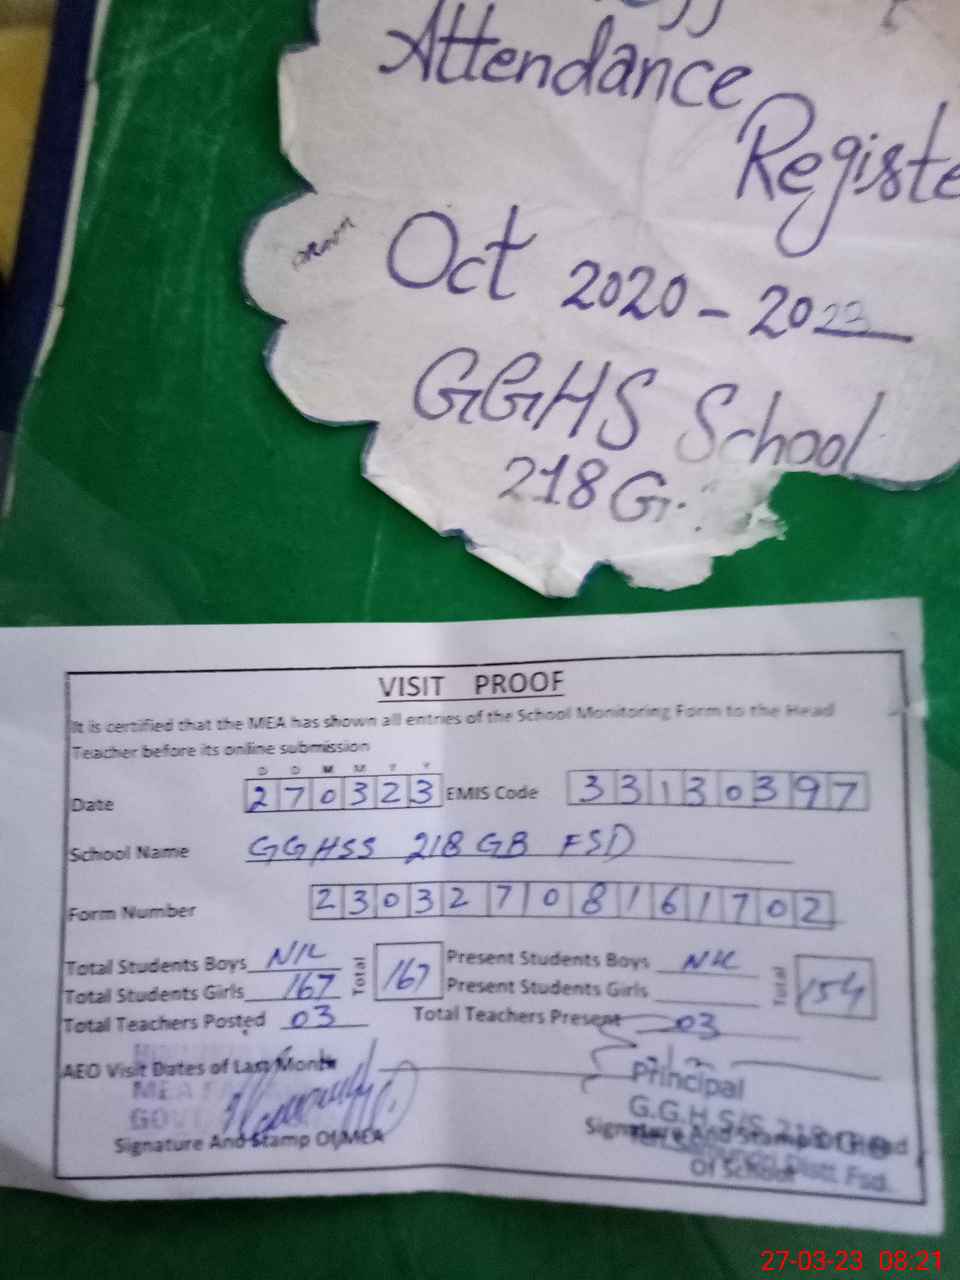 Attendance
Registe
Oct 2020 - 2023
GGHS School
218 G.
VISIT PROOF
It is certified that the MEA has shown all entries of the School Monitoring Form to the Head
Teacher before its online submission
D D M M Y Y
Date 270323 EMIS Code 33130397
School Name GGHSS 218 GB FSD
Form Number 23032708161702
Total Students Boys NIL Total 167 Present Students Boys NIL Total 154
Total Students Girls 167 Present Students Girls
Total Teachers Posted 03 Total Teachers Present 03
AEO Visit Dates of Last Month
Principal
MEA
G.G.H.S/S. 218
GO
Signature And Stamp Of MEA Signature And Stamp Of Head
Of School
Distt Fsd.
27-03-23 08:21